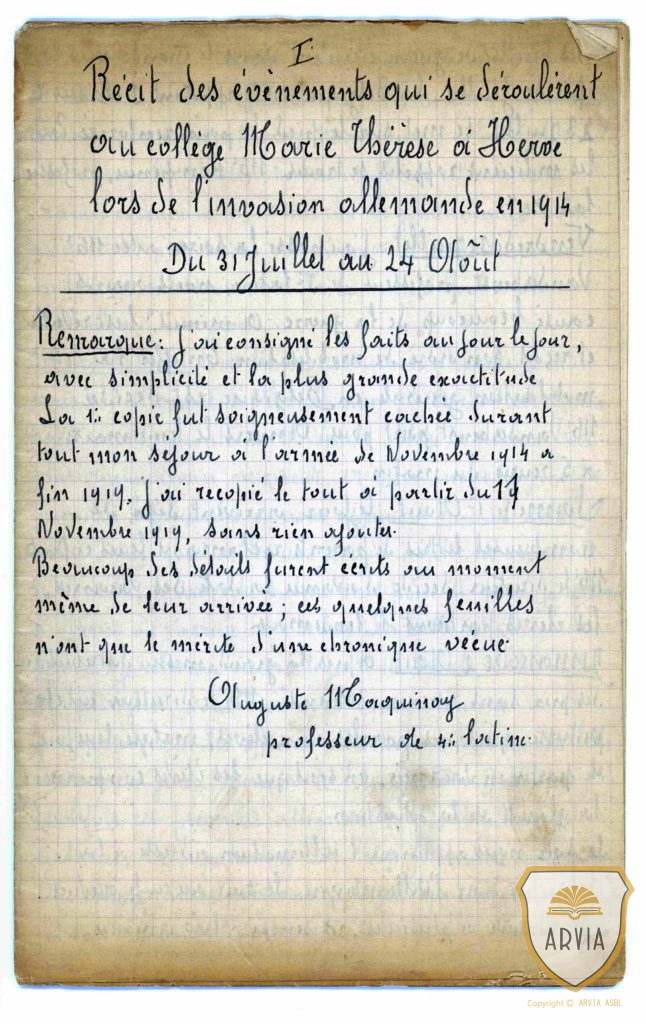 I.
Récit des évènements qui se déroulèrent
au collège Marie Thérèse à Herve
lors de l'invasion allemande en 1914
Du 31 Juillet au 24 Août
Remarque: j'ai consigné les faits au jour le jour,
avec simplicité et la plus grande exactitude
La 1: copie fut soigneusement cachée durant
tout mon séjour à l'armée de Novembre 1914 à
fin 1919, j'ai recopié le tout à partir du 17
Novembre 1919, sans rien ajouter.
Beaucoup des détails furent écrits au moment
même de leur arrivée; ces quelques feuilles
n'ont que le mérite d'une chronique vécue.
Auguste Maquinay
professeur de 4: latine.
ARVIA
Copyright © ARVIA ASBL